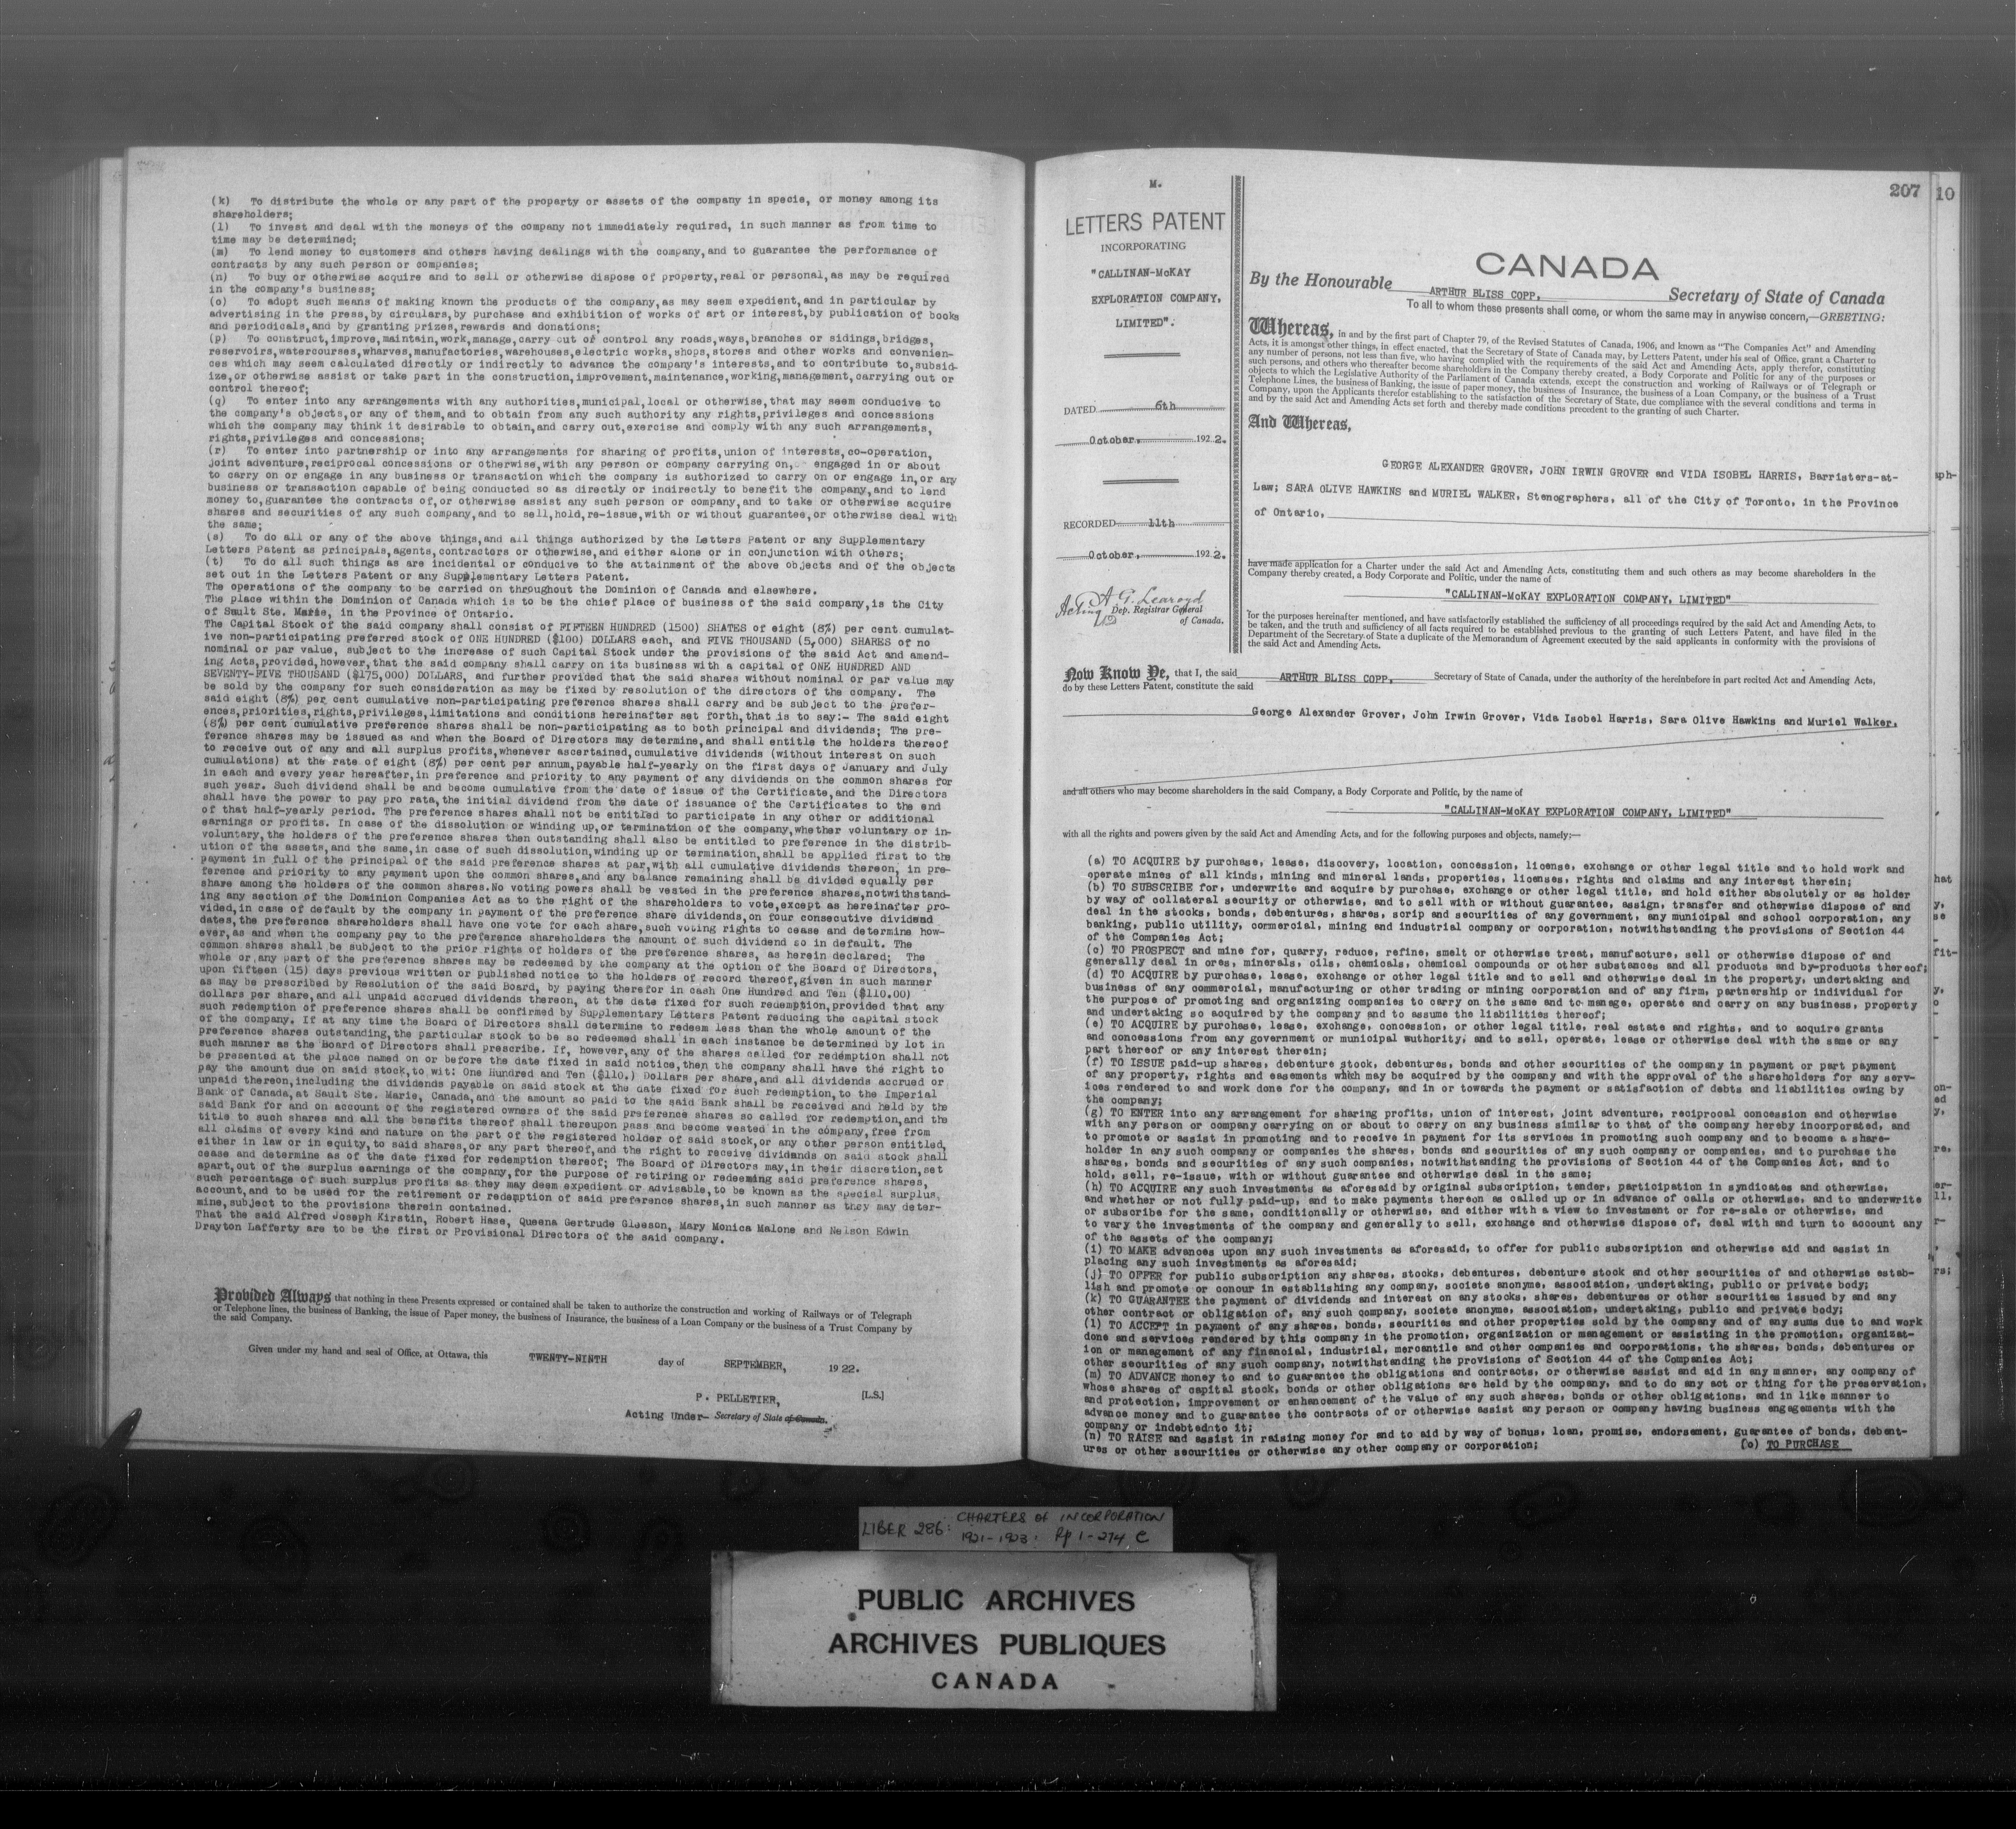 (k) To distribute the whole or any part of the property or assets of the company in specie, or money among its
shareholders;
(l) To invest and deal with the moneys of the company not immediately required, in such manner as from time to
time may be determined;
(m) To lend money to customers and others having dealings with the company,and to guarantee the performance of
contracts by any such person or companies;
(n) To buy or otherwise acquire and to sell or otherwise dispose of property,real or personal,as may be required
in the company's business;
(o) To adopt such means of making known the products of the company,as may seem expedient,and in particular by
advertising in the press,by circulars,by purchase and exhibition of works of art or interest,by publication of books
and periodicals,and by granting prizes,rewards and donations;
(p) To construct,improve,maintain,work,manage,carry out or control any roads,ways,branches or sidings,bridges,
reservoirs,watercourses,wharves,manufactories,warehouses,electric works,shops,stores and other works and convenien-
ces which may seem calculated directly or indirectly to advance the company's interests,and to contribute to,subsid-
ize,or otherwise assist or take part in the construction,improvement,maintenance,working,management,carrying out or
control thereof;
(q) To enter into any arrangements with any authorities,municipal,local or otherwise,that may seem conducive to
the company's objects,or any of them,and to obtain from any such authority any rights,privileges and concessions
which the company may think it desirable to obtain,and carry out,exercise and comply with any such arrangements,
rights,privileges and concessions;
(r) To enter into partnership or into any arrangements for sharing of profits,union of interests,co-operation,
joint adventure,reciprocal concessions or otherwise,with any person or company carrying on, engaged in or about
to carry on or engage in any business or transaction which the company is authorized to carry on or engage in,or any
business or transaction capable of being conducted so as directly or indirectly to benefit the company,and to lend
money to,guarantee the contracts of,or otherwise assist any such person or company,and to take or otherwise acquire
shares and securities of any such company,and to sell,hold,re-issue,with or without guarantee,or otherwise deal with
the same;
(s) To do all or any of the above things,and all things authorized by the Letters Patent or any Supplementary
Letters Patent as principals,agents,contractors or otherwise,and either alone or in conjunction with others;
(t) To do all such things as are incidental or conducive to the attainment of the above objects and of the objects
set out in the Letters Patent or any Supplementary Letters Patent.
The operations of the company to be carried on throughout the Dominion of Canada and elsewhere.
The place within the Dominion of Canada which is to be the chief place of business of the said company,is the City
of Sault Ste. Marie, in the Province of Ontario.
The Capital Stock of the said company shall consist of FIFTEEN HUNDRED (1500) SHATES of eight (8%) per cent cumulat-
ive non-participating preferred stock of ONE HUNDRED ($100) DOLLARS each, and FIVE THOUSAND (5,000) SHARES of no
nominal or par value, subject to the increase of such Capital Stock under the provisions of the said Act and amend-
ing Acts,provided,however,that the said company shall carry on its business with a capital of ONE HUNDRED AND
SEVENTY-FIVE THOUSAND ($175,000) DOLLARS, and further provided that the said shares without nominal or par value may
be sold by the company for such consideration as may be fixed by resolution of the directors of the company. The
said eight (8%) per cent cumulative non-participating preference shares shall carry and be subject to the prefer-
ences,priorities,rights,privileges,limitations and conditions hereinafter set forth,that is to say:- The said eight
(8%) per cent cumulative preference shares shall be non-participating as to both principal and dividends; The pre-
ference shares may be issued as and when the Board of Directors may determine,and shall entitle the holders thereof
to receive out of any and all surplus profits,whenever ascertained,cumulative dividends (without interest on such
cumulations) at the rate of eight (8%) per cent per annum,payable half-yearly on the first days of January and July
in each and every year hereafter,in preference and priority to any payment of any dividends on the common shares for
such year. Such dividend shall be and become cumulative from the date of issue of the Certificate,and the Directors
shall have the power to pay pro rata,the initial dividend from the date of issuance of the Certificates to the end
of that half-yearly period. The preference shares shall not be entitled to participate in any other or additional
earnings or profits. In case of the dissolution or winding up,or termination of the company,whether voluntary or in-
voluntary,the holders of the preference shares then outstanding shall also be entitled to preference in the distrib-
ution of the assets,and the same,in case of such dissolution,winding up or termination,shall be applied first to the
payment in full of the principal of the said preference shares at par,with all cumulative dividends thereon, in pre-
ference and priority to any payment upon the common shares,and any balance remaining shall be divided equally per
share among the holders of the common shares.No voting powers shall be vested in the preference shares,notwithstand-
ing any section of the Dominion Companies Act as to the right of the shareholders to vote,except as hereinafter pro-
vided,in case of default by the company in payment of the preference share dividends,on four consecutive dividend
dates,the preference shareholders shall have one vote for each share,such voting rights to cease and determine how-
ever,as and when the company pay to the preference shareholders the amount of such dividend so in default. The
common shares shall be subject to the prior rights of holders of the preference shares, as herein declared; The
whole or any part of the preference shares may be redeemed by the company at the option of the Board of Directors,
upon fifteen (15) days previous written or published notice to the holders of record thereof,given in such manner
as may be prescribed by Resolution of the said Board, by paying therefor in cash One Hundred and Ten ($110.00)
dollars per share,and all unpaid accrued dividends thereon, at the date fixed for such redemption,provided that any
such redemption of preference shares shall be confirmed by Supplementary Letters Patent reducing the capital stock
of the company. If at any time the Board of Directors shall determine to redeem less than the whole amount of the
preference shares outstanding,the particular stock to be so redeemed shall in each instance be determined by lot in
such manner as the Board of Directors shall prescribe. If, however,any of the shares called for redemption shall not
be presented at the place named on or before the date fixed in said notice,then the company shall have the right to
pay the amount due on said stock,to wit: One Hundred and Ten ($110.) Dollars per share,and all dividends accrued or
unpaid thereon,including the dividends payable on said stock at the date fixed for such redemption,to the Imperial
Bank of Canada,at Sault Ste. Marie, Canada,and the amount so paid to the said Bank shall be received and held by the
said Bank for and on account of the registered owners of the said preference shares so called for redemption,and the
title to such shares and all the benefits thereof shall thereupon pass and become vested in the company,free from
all claims of every kind and nature on the part of the registered holder of said stock,or any other person entitled,
either in law or in equity,to said shares,or any part thereof,and the right to receive dividends on said stock shall
cease and determine as of the date fixed for redemption thereof; The Board of Directors may,in their discretion,set
apart,out of the surplus earnings of the company,for the purpose of retiring or redeeming said preference shares,
such percentage of such surplus profits as they may deem expedient or advisable,to be known as the special surplus,
account,and to be used for the retirement or redemption of said preference shares,in such manner as they may deter-
mine,subject to the provisions therein contained.
That the said Alfred Joseph Kirstin, Robert Hase, Queena Gertrude Gleeson, Mary Monica Malone and Nelson Edwin
Drayton Lafferty are to be the first or Provisional Directors of the said company.
Provided Always that nothing in these Presents expressed or contained shall be taken to authorize the construction and working of Railways or of Telegraph
or Telephone lines, the business of Banking, the issue of Paper money, the business of Insurance, the business of a Loan Company or the business of a Trust Company by
the said Company.
Given under my hand and seal of Office, at Ottawa, this TWENTY-NINTH day of SEPTEMBER, 1922.
P. PELLETIER, [L.S.]
Acting Under- Secretary of State of Canada.
207
10
M.
LETTERS PATENT
INCORPORATING
"CALLINAN-McKAY
EXPLORATION COMPANY,
LIMITED".
DATED 6th
October, 1922.
RECORDED 11th
October, 1922.
A G Learoyd
Acting Dep. Registrar General
of Canada.
CANADA
By the Honourable ARTHUR BLISS COPP, Secretary of State of Canada
To all to whom these presents shall come, or whom the same may in anywise concern,—GREETING:
Whereas, in and by the first part of Chapter 79, of the Revised Statutes of Canada, 1906, and known as "The Companies Act" and Amending
Acts, it is amongst other things, in effect enacted, that the Secretary of State of Canada may, by Letters Patent, under his seal of Office, grant a Charter to
any number of persons, not less than five, who having complied with the requirements of the said Act and Amending Acts, apply therefor, constituting
such persons, and others who thereafter become shareholders in the Company thereby created, a Body Corporate and Politic for any of the purposes or
objects to which the Legislative Authority of the Parliament of Canada extends, except the construction and working of Railways or of Telegraph or
Telephone Lines, the business of Banking, the issue of paper money, the business of Insurance, the business of a Loan Company, or the business of a Trust
Company, upon the Applicants therefor establishing to the satisfaction of the Secretary of State, due compliance with the several conditions and terms in
and by the said Act and Amending Acts set forth and thereby made conditions precedent to the granting of such Charter.
And Whereas,
GEORGE ALEXANDER GROVER, JOHN IRWIN GROVER and VIDA ISOBEL HARRIS, Barristers-at-
Law; SARA OLIVE HAWKINS and MURIEL WALKER, Stenographers, all of the City of Toronto, in the Province
of Ontario,
have made application for a Charter under the said Act and Amending Acts, constituting them and such others as may become shareholders in the
Company thereby created, a Body Corporate and Politic, under the name of
"CALLINAN-McKAY EXPLORATION COMPANY, LIMITED"
for the purposes hereinafter mentioned, and have satisfactorily established the sufficiency of all proceedings required by the said Act and Amending Acts, to
be taken, and the truth and sufficiency of all facts required to be established previous to the granting of such Letters Patent, and have filed in the
Department of the Secretary of State a duplicate of the Memorandum of Agreement executed by the said applicants in conformity with the provisions of
the said Act and Amending Acts.
Now Know Ye, that I, the said ARTHUR BLISS COPP, Secretary of State of Canada, under the authority of the hereinbefore in part recited Act and Amending Acts,
do by these Letters Patent, constitute the said
George Alexander Grover, John Irwin Grover, Vida Isobel Harris, Sara Olive Hawkins and Muriel Walker,
and all others who may become shareholders in the said Company, a Body Corporate and Politic, by the name of
"CALLINAN-McKAY EXPLORATION COMPANY, LIMITED"
with all the rights and powers given by the said Act and Amending Acts, and for the following purposes and objects, namely:—
(a) TO ACQUIRE by purchase, lease, discovery, location, concession, license, exchange or other legal title and to hold work and
operate mines of all kinds, mining and mineral lands, properties, licenses, rights and claims and any interest therein;
(b) TO SUBSCRIBE for, underwrite and acquire by purchase, exchange or other legal title, and hold either absolutely or as holder
by way of collateral security or otherwise, and to sell with or without guarantee, assign, transfer and otherwise dispose of and
deal in the stocks, bonds, debentures, shares, scrip and securities of any government, any municipal and school corporation, any
banking, public utility, commercial, mining and industrial company or corporation, notwithstanding the provisions of Section 44
of the Companies Act;
(c) TO PROSPECT and mine for, quarry, reduce, refine, smelt or otherwise treat, manufacture, sell or otherwise dispose of and
generally deal in ores, minerals, oils, chemicals, chemical compounds or other substances and all products and by-products thereof;
(d) TO ACQUIRE by purchase, lease, exchange or other legal title and to sell and otherwise deal in the property, undertaking and
business of any commercial, manufacturing or other trading or mining corporation and of any firm, partnership or individual for
the purpose of promoting and organizing companies to carry on the same and to manage, operate and carry on any business, property
and undertaking so acquired by the company and to assume the liabilities thereof;
(e) TO ACQUIRE by purchase, lease, exchange, concession, or other legal title, real estate and rights, and to acquire grants
and concessions from any government or municipal wuthority, and to sell, operate, lease or otherwise deal with the same or any
part thereof or any interest therein;
(f) TO ISSUE paid-up shares, debenture stock, debentures, bonds and other securities of the company in payment or part payment
of any property, rights and easements which may be acquired by the company and with the approval of the shareholders for any serv-
ices rendered to and work done for the company, and in or towards the payment or satisfaction of debts and liabilities owing by
the company;
(g) TO ENTER into any arrangement for sharing profits, union of interest, joint adventure, reciprocal concession and otherwise
with any person or company carrying on or about to carry on any business similar to that of the company hereby incorporated, and
to promote or assist in promoting and to receive in payment for its services in promoting such company and to become a share-
holder in any such company or companies the shares, bonds and securities of any such company or companies, and to purchase the
shares, bonds and securities of any such companies, notwithstanding the provisions of Section 44 of the Companies Act, and to
hold, sell, re-issue, with or without guarantee and otherwise deal in the same;
(h) TO ACQUIRE any such investments as aforesaid by original subscription, tender, participation in syndicates and otherwise,
and whether or not fully paid-up, and to make payments thereon as called up or in advance of calls or otherwise, and to underwrite
or subscribe for the same, conditionally or otherwise, and either with a view to investment or for re-sale or otherwise, and
to vary the investments of the company and generally to sell, exchange and otherwise dispose of, deal with and turn to account any
of the assets of the company;
(i) TO MAKE advances upon any such investments as aforesaid, to offer for public subscription and otherwise aid and assist in
placing any such investments as aforesaid;
(j) TO OFFER for public subscription any shares, stocks, debentures, debenture stock and other securities of and otherwise estab-
lish and promote or concur in establishing any company, societe anonyme, association, undertaking, public or private body;
(k) TO GUARANTEE the payment of dividends and interest on any stocks, shares, debentures or other securities issued by and any
other contract or obligation of, any such company, societe anonyme, association, undertaking, public and private body;
(l) TO ACCEPT in payment of any shares, bonds, securities and other properties sold by the company and of any sums due to and work
done and services rendered by this company in the promotion, organization or management or assisting in the promotion, organizat-
ion or management of any financial, industrial, mercantile and other companies and corporations, the shares, bonds, debentures or
other securities of any such company, notwithstanding the provisions of Section 44 of the Companies Act;
(m) TO ADVANCE money to and to guarantee the obligations and contracts, or otherwise assist and aid in any manner, any company of
whose shares of capital stock, bonds or other obligations are held by the company, and to do any act or thing for the preservation,
and protection, improvement or enhancement of the value of any such shares, bonds or other obligations, and in like manner to
advance money and to guarantee the contracts of or otherwise assist any person or company having business engagements with the
company or indebtednto it;
(n) TO RAISE and assist in raising money for and to aid by way of bonus, loan, promise, endorsement, guarantee of bonds, debent-
ures or other securities or otherwise any other company or corporation; (o) TO PURCHASE
LIBER 286: CHARTERS OF INCORPORATION
1921-1923. Pp 1-274 C
PUBLIC ARCHIVES
ARCHIVES PUBLIQUES
CANADA